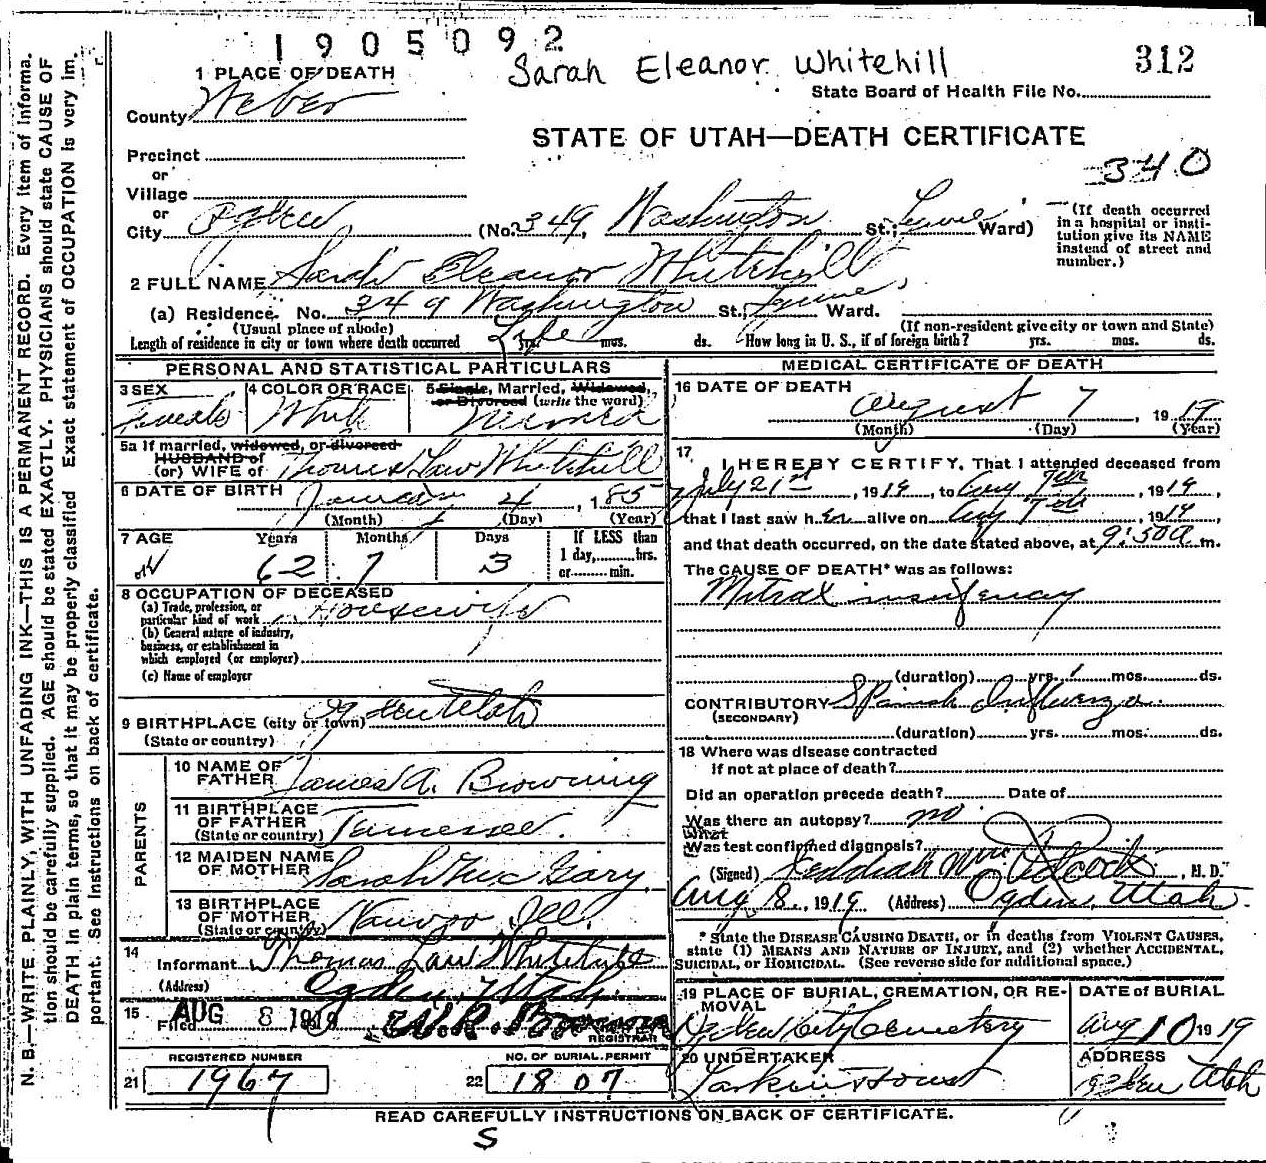 1905092
Sarah Eleanor Whitehill
312
State Board of Health File No.
1 PLACE OF DEATH
County Weber
STATE OF UTAH—DEATH CERTIFICATE
340
Precinct
or
Village
or
City Ogden (No. 349, Washington St.; Lynne Ward)
(If death occurred
in a hospital or insti-
tution give its NAME
instead of street and
number.)
2 FULL NAME Sarah Eleanor Whitehill
(a) Residence. No. 349 Washington St., Lynne, Ward.
(Usual place of abode) (If non-resident give city or town and State)
Length of residence in city or town where death occurred Life yrs. mos. ds. How long in U. S., if of foreign birth? yrs. mos. ds.
PERSONAL AND STATISTICAL PARTICULARS
3 SEX Female
4 COLOR OR RACE White
5 Single, Married, Widowed,
or Divorced (write the word) Married
5a If married, widowed, or divorced
HUSBAND of
(or) WIFE of Thomas Law Whitehill
6 DATE OF BIRTH January 4, 185
(Month) (Day) (Year)
7 AGE Years Months Days If LESS than
1 day, hrs.
or min.
62 7 3
8 OCCUPATION OF DECEASED
(a) Trade, profession, or
particular kind of work Housewife
(b) General nature of industry,
business, or establishment in
which employed (or employer)
(c) Name of employer
9 BIRTHPLACE (city or town) Ogden Utah
(State or country)
PARENTS
10 NAME OF
FATHER James A. Browning
11 BIRTHPLACE
OF FATHER
(State or country) Tennessee.
12 MAIDEN NAME
OF MOTHER Sarah Mc Gary
13 BIRTHPLACE
OF MOTHER
(State or country) Nauvoo Ill.
14
Informant Thomas Law Whitehill
(Address) Ogden, Utah.
15 Filed AUG 8 1919
REGISTRAR
REGISTERED NUMBER
21 1967
NO. OF BURIAL PERMIT
22 1807
MEDICAL CERTIFICATE OF DEATH
16 DATE OF DEATH
August 7, 1919
(Month) (Day) (Year)
17
I HEREBY CERTIFY, That I attended deceased from
July 21st, 1919, to Aug 7th, 1919,
that I last saw her alive on Aug 7th, 1919,
and that death occurred, on the date stated above, at 9:50 a m.
The CAUSE OF DEATH* was as follows:
Mitral insufency
(duration) yrs. mos. ds.
CONTRIBUTORY Spanish Influenza.
(SECONDARY)
(duration) yrs. mos. ds.
18 Where was disease contracted
If not at place of death?
Did an operation precede death? Date of
Was there an autopsy? no
What
Was test confirmed diagnosis?
(Signed) , M. D.
Aug 8., 1919 (Address) Ogden, Utah.
* State the DISEASE CAUSING DEATH, or in deaths from VIOLENT CAUSES,
state (1) MEANS AND NATURE OF INJURY, and (2) whether ACCIDENTAL,
SUICIDAL, or HOMICIDAL. (See reverse side for additional space.)
19 PLACE OF BURIAL, CREMATION, OR RE-
MOVAL
Ogden City Cemetery
DATE of BURIAL
Aug 10 1919
20 UNDERTAKER
Larkin & Sons
ADDRESS
Ogden Utah
READ CAREFULLY INSTRUCTIONS ON BACK OF CERTIFICATE.
S
N. B.—WRITE PLAINLY, WITH UNFADING INK—THIS IS A PERMANENT RECORD. Every item of informa-
tion should be carefully supplied. AGE should be stated EXACTLY. PHYSICIANS should state CAUSE OF
DEATH in plain terms, so that it may be properly classified Exact statement of OCCUPATION is very im-
portant. See instructions on back of certificate.